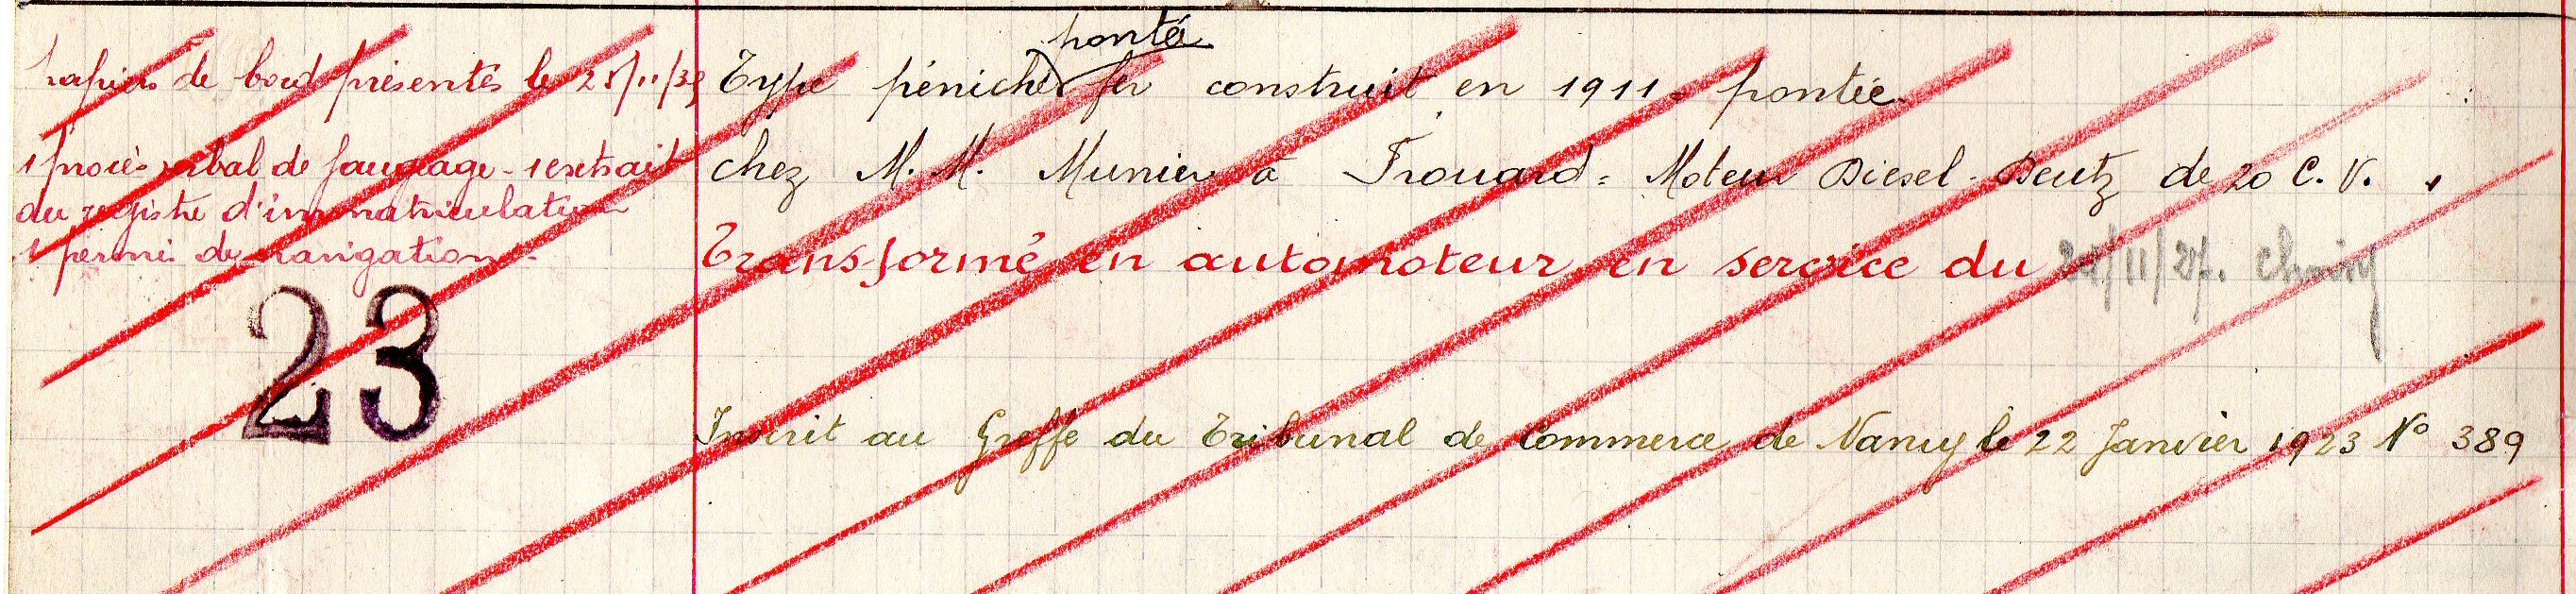 papiers de bord présentés le 25/11/39
1 procès verbal de jaugeage - 1 extrait
du registre d'immatriculation
1 permis de navigation -
23
pontée
Type péniche fer construit en 1911 - pontée.
chez M. M. Munier à Frouard = Moteur Diesel - Deutz de 20 C. V.
Transformé en automoteur en service du /11/27.
Inscrit au Greffe du Tribunal de Commerce de Nancy le 22 Janvier 1923 N° 389